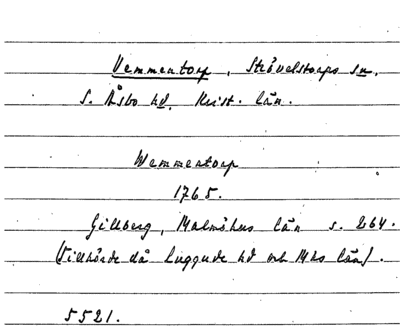 Vemmentorp, Strövelstorps sn,
S. Åsbo hd, Krist. län.
Wemmentorp
1765.
Gillberg, Malmöhus län s. 264.
(Tillhörde då Luggude hd och Mhs län).
5521.